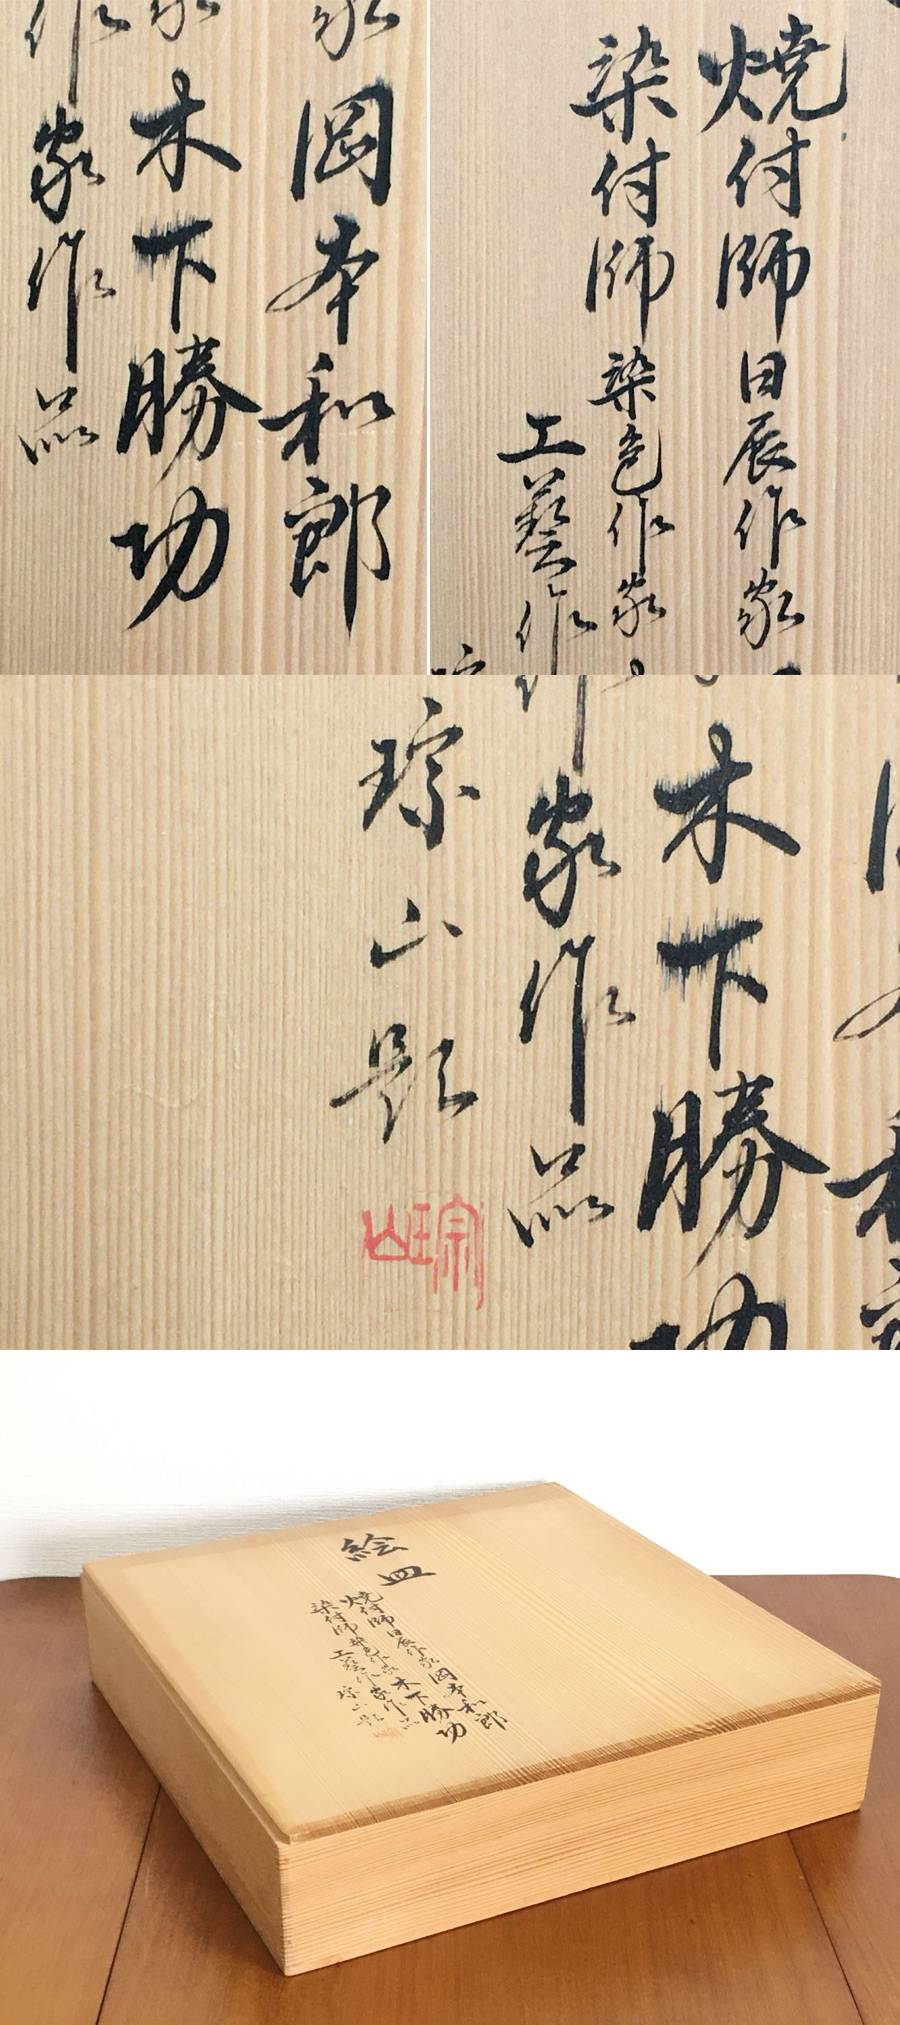 岡本和郎
木下勝功
家作品
焼付師日展作家
染付師染色作家
工藝作
木下勝功
家作品
琮山題
琮山
絵皿
焼付師日展作家岡本和郎
染付師染色作家木下勝功
工藝作家作品
琮山題